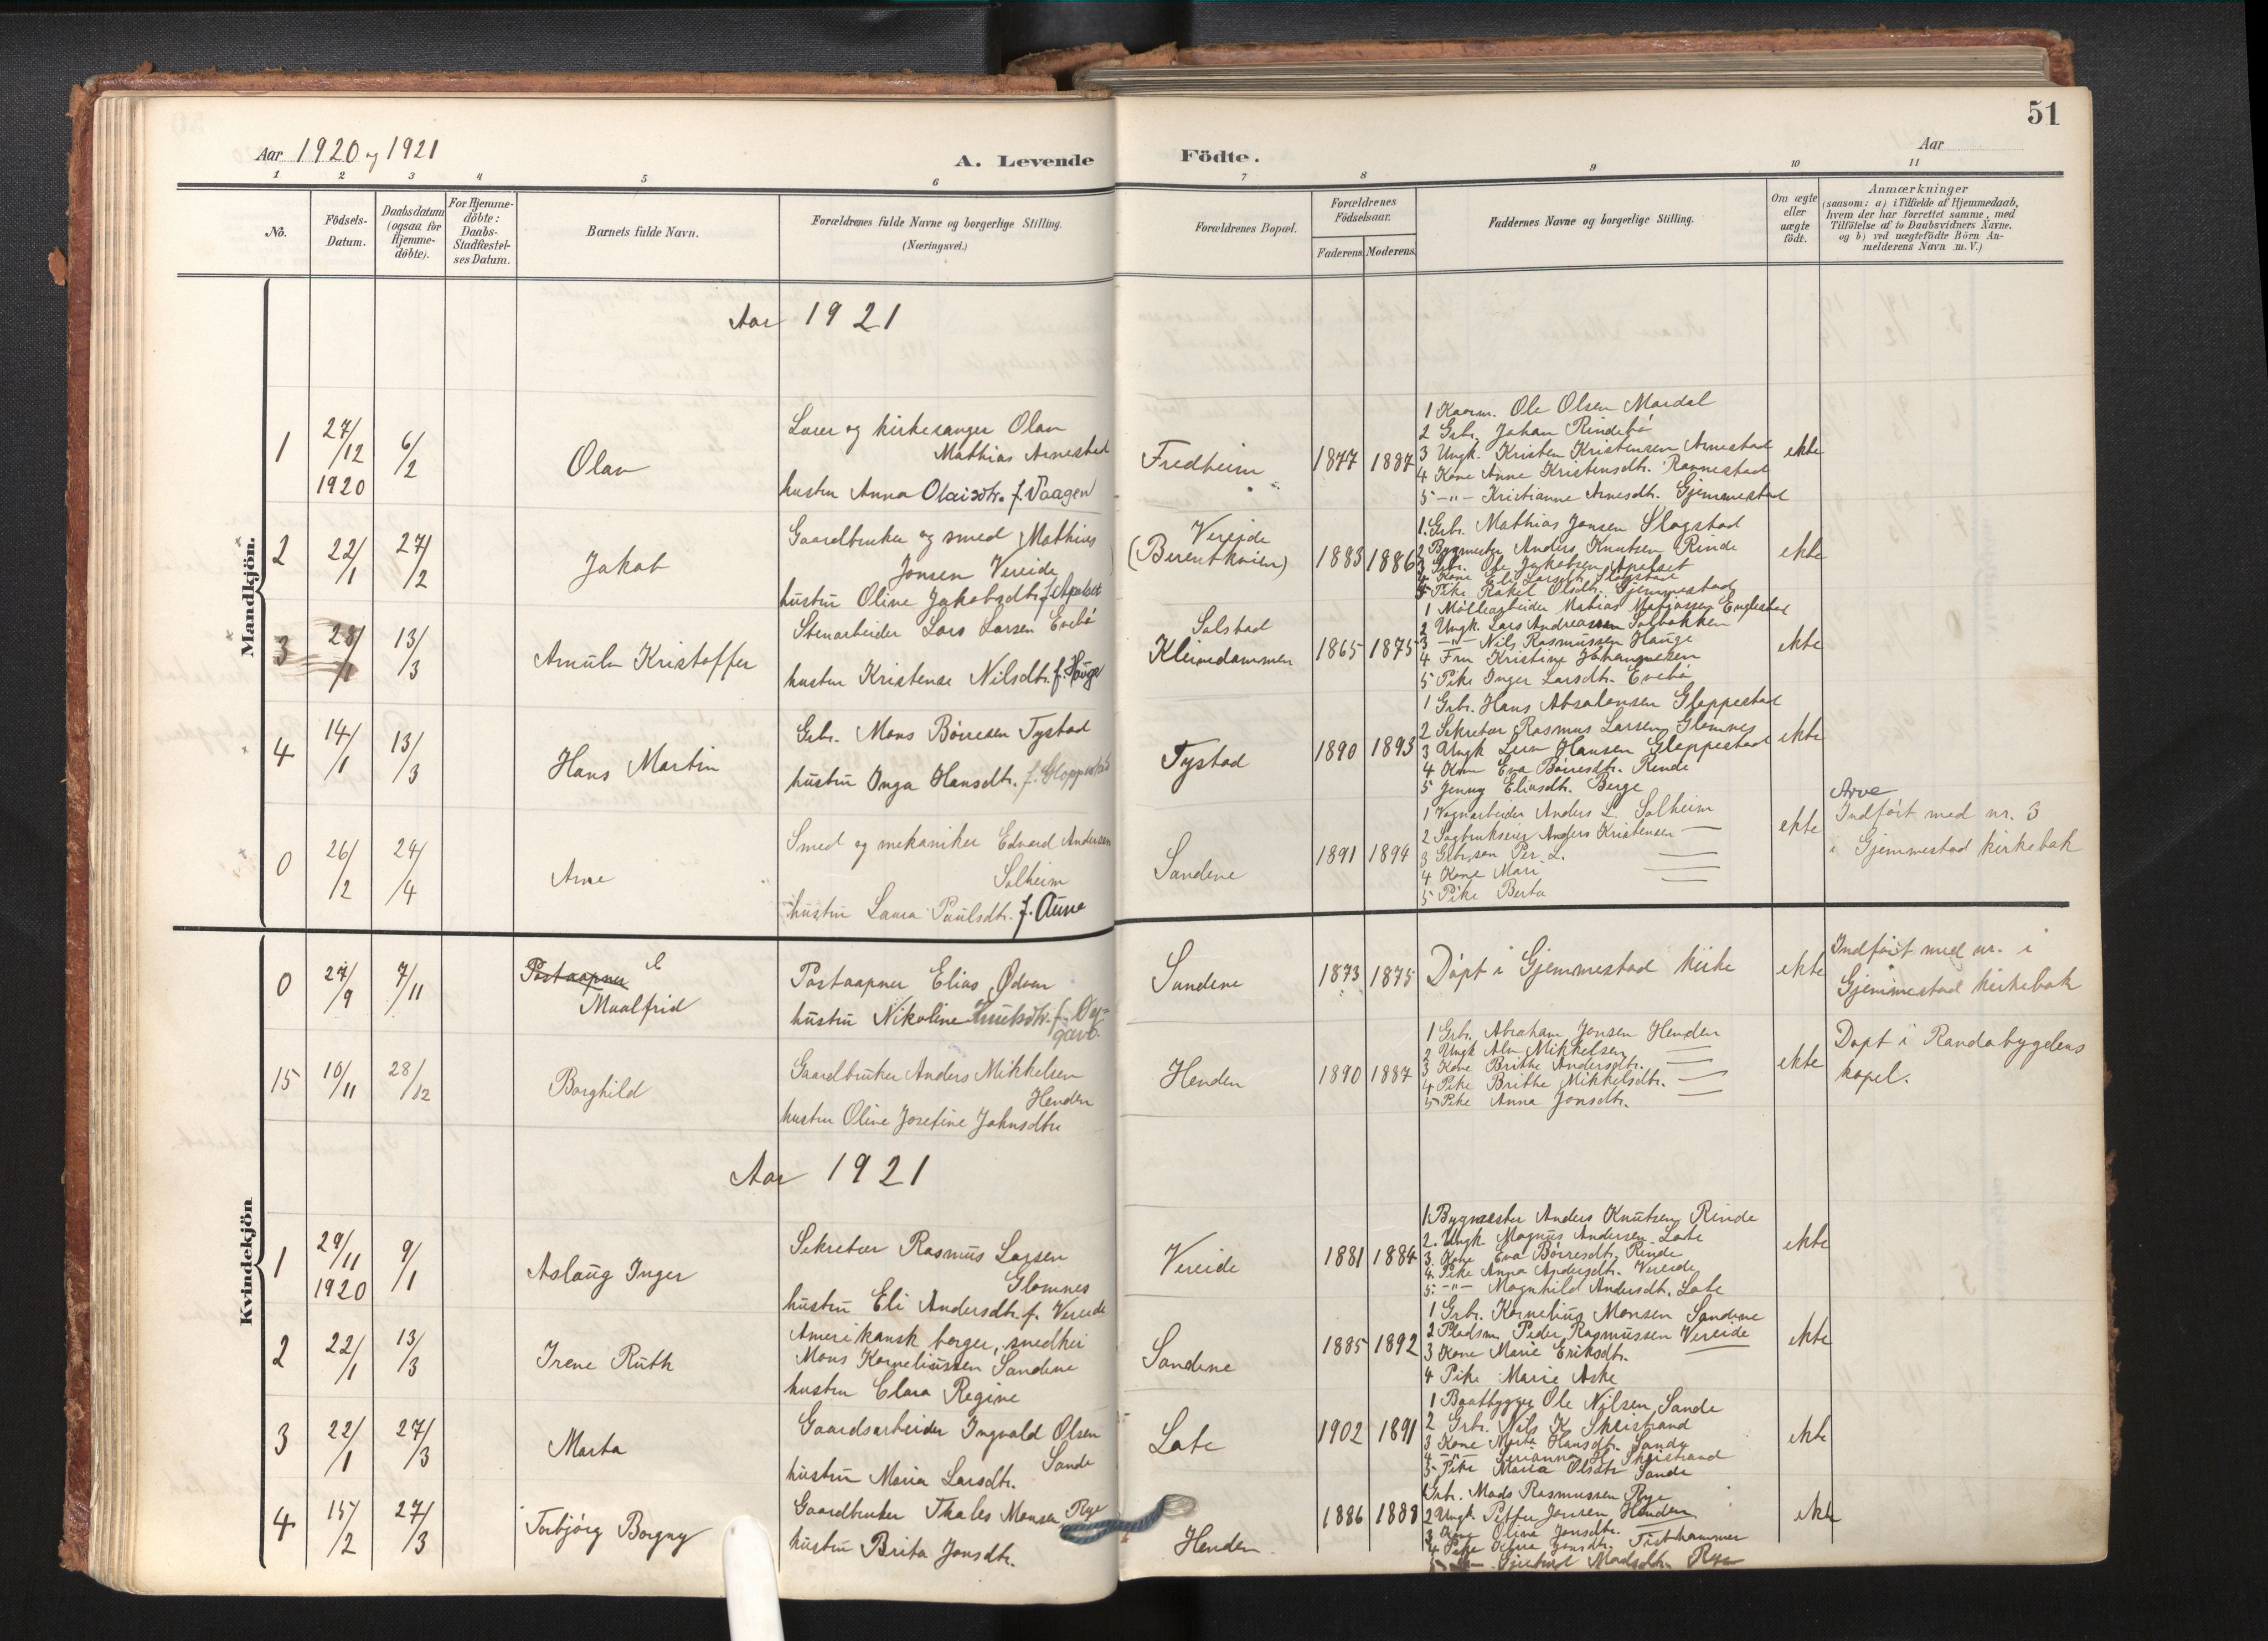 51
Aar 1920 og 1921
A. Levende Födte.
Aar
1 2 3 4 5 6 7 8 9 10 11
No.
Födsels-Datum.
Daabsdatum (ogsaa for Hjemme-döbte).
For Hjemme-döbte: Daabs-Stadfæstel-ses Datum.
Barnets fulde Navn.
Forældrenes fulde Navne og borgerlige Stilling.
(Næringsvei.)
Forældrenes Bopæl.
Forældrenes Födselsaar.
Faderens Moderens
Faddernes Navne og borgerlige Stilling.
Om ægte eller uægte födt.
Anmærkninger
(saasom: a) i Tilfælde af Hjemmedaab,
hvem der har forrettet samme, med
Tilföielse af to Daabsvidners Navne,
og b) ved uægtefödte Börn An-
melderens Navn m. V.)
Mandkjön.
Aar 1921
1 27/12 1920 6/2 Olav
Lærer og kirkesanger Olav
Mathias Arnestad
hustru Anna Olaisdtr. f. Vaagen
Fredheim 1877 1887
1 Kaarm. Ole Olsen Mardal
2 Grbr. Johan Rindebö
3 Ungk. Kristen Kristensen Arnestad
4 Kone Anne Kristensdtr. Rannestad
5 -"- Kristianne Arnesdtr. Gjemmestad
ekte
2 22/1 27/2 Jakob
Gaardbruker og smed Mathias
Jonsen Vereide
hustru Oline Jakobsdtr. f. Apalset
Vereide
(Berentkvien) 1883 1886
1. Grbr. Mathias Jonsen Slagstad
2 Bygmester Anders Knutsen Rinde
3 Grbr. Ole Jakobsen Apalset
4 Kone Eli Larsdtr. Slagstad
5 Pike Rakel Olsdtr. Gjemmestad
ekte
3 28/1 13/3 Arnulv Kristoffer
Stenarbeider Lars Larsen Evebö
hustru Kristense Nilsdtr. f. Hauge
Solstad
Kleivedammen 1865 1875
1 Möllearbeider Matias Matiassen Englestad
2 Ungk. Lars Andreassen Solbakken
3 -"- Nils Rasmussen Hauge
4 Fru Kristine Johannesen
5 Pike Inger Larsdtr. Evebö
ekte
4 14/1 13/3 Hans Martin
Grbr. Mons Börresen Tystad
hustru Inga Hansdtr. f. Gloppestad
Tystad 1890 1893
1 Grbr. Hans Absalonsen Gloppestad
2 Sekretær Rasmus Larsen Glomnes
3 Ungk Hansen Gloppestad
4 Kone Eva Börresdtr. Rinde
5 Jenny Eliasdtr. Berge
ekte
0 26/2 24/4 Arne
Smed og mekaniker Edvard Andersen
Solheim
hustru Laura Paulsdtr. f. Aune
Sandene 1891 1894
1 Vognarbeider Anders L. Solheim
2 Sagbrukseier Anders Kristensen —
3 Grbr.søn Per L. —
4 Kone Mari —
5 Pike Berta
ekte
Arve
Indført med nr. 3
i Gjemmestad kirkebok
Kvindekjön
0 27/9 7/11 Postaapner E
Maalfrid
Postaapner Elias Ødven
hustru Nikoline Knutsdtr. f. Øy-
gard.
Sandene 1873 1875
Döpt i Gjemmestad kirke
ekte
Indført med nr. i
Gjemmestad kirkebok
15 10/11 28/12 Borghild
Gaardbruker Anders Mikkelsen
Henden
hustru Oline Josefine Johnsdtr
Henden 1890 1887
1 Grbr. Abraham Jonsen Henden
2 Ungk Alv Mikkelsen —
3 Kone Brithe Andersdtr. —
4 Pike Brithe Mikkelsdtr. —
5 Pike Anna Jonsdtr.
ekte
Döpt i Randabygdens
kapel.
Aar 1921
1 29/11 1920 9/1 Aslaug Inger
Sekretær Rasmus Larsen
Glomnes
hustru Eli Andersdtr. f. Vereide
Vereide 1881 1884
1. Bygmester Anders Knutsen Rinde
2. Ungk. Magnus Andersen Lote
3. Kone Eva Börresdtr. Rinde
4. Pike Anna Andersdtr. Vereide
5. -"- Magnhild Andersdtr. Lote
ekte
2 22/1 13/3 Irene Ruth
Amerikansk borger, snedker
Mons Korneliussen Sandene
hustru Clara Regine
Sandene 1885 1892
1 Grbr. Kornelius Monsen Sandene
2 Pladsm. Peder Rasmussen Vereide
3 Kone Marie Eriksdtr. —
4 Pike Marie Aske
ekte
3 22/1 27/3 Marta
Gaardsarbeider Ingvald Olsen
Sande
hustru Maria Larsdtr.
Lote 1902 1891
1 Baatbygger Ole Nilsen Sande
2 Grbr. Nils K. Skeistrand
3 Kone Marta Hansdtr. Sande
4 -"- Skeistrand
5 Pike Maria Olsdtr Sande
ekte
4 15/2 27/3 Torbjörg Borgny
Gaardbruker Thales Monsen Rye
hustru Brita Jonsdtr.
Henden 1886 1888
1 Grbr. Mads Rasmussen Rye
2 Ungk. Petter Jonsen Henden
3 Kone Oline Jonsdtr. Tisthammer
4 Pike Jonsdtr.
5 -"- Madsdtr. Rye
ekte